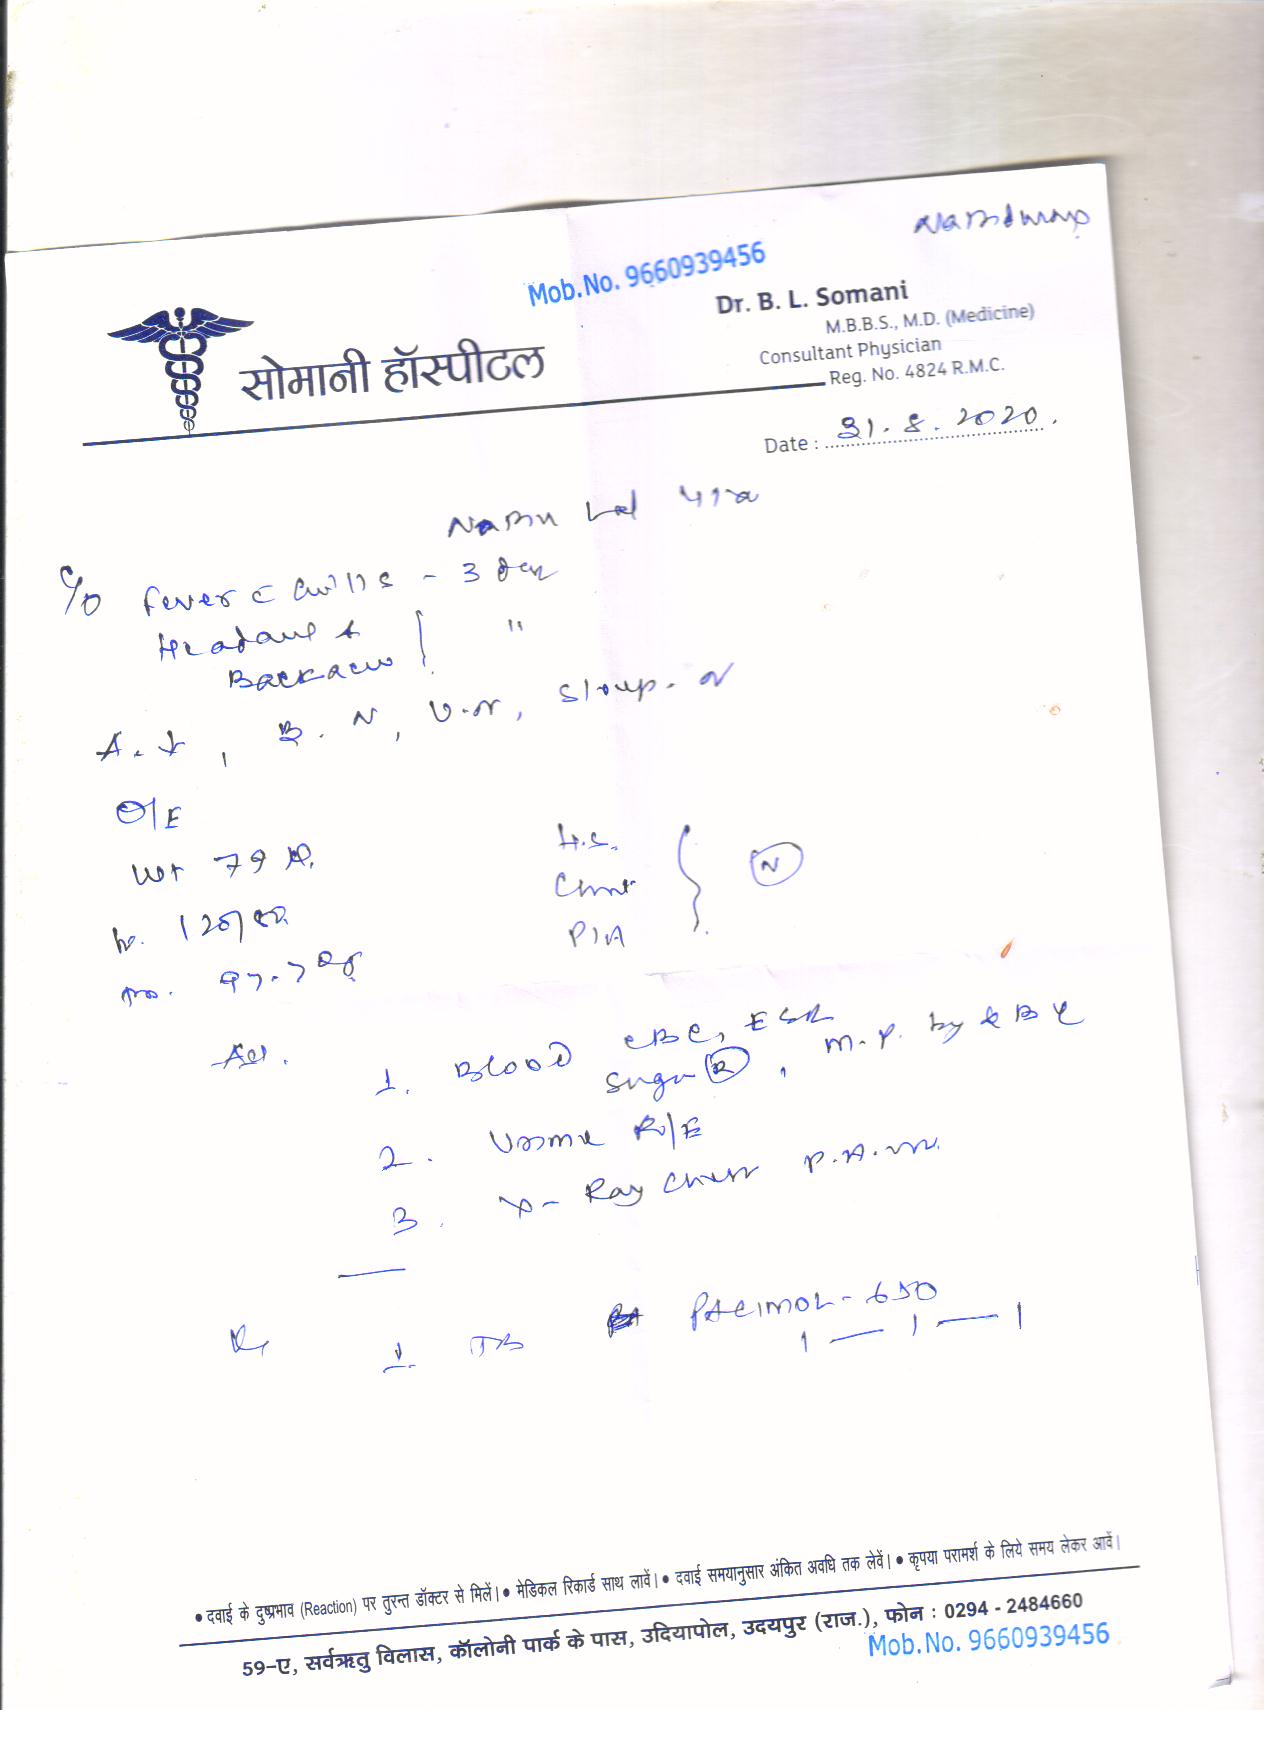 Mob.No. 9660939456
सोमानी हॉस्पीटल
Dr. B. L. Somani
M.B.B.S., M.D. (Medicine)
Consultant Physician
Reg. No. 4824 R.M.C.
Date : 31.8.2020.
Lal
C/O Fever c Chills - 3
Headache &
Backache "
A. ↓, B. N, U-N, Sleep - N
O/E
Wt 79
120/80
97.7
H.S.
Chest
P/A
N
Adv.
1. Blood CBC, ESR
Sugar R, M.P. by QBC
2. Urine R/E
3. X-Ray Chest P.A.
Rx 1. TB PACIMOL-650
1 — 1 — 1
• दवाई के दुष्प्रभाव (Reaction) पर तुरन्त डॉक्टर से मिलें। • मेडिकल रिकार्ड साथ लावें। • दवाई समयानुसार अंकित अवधि तक लेवें। • कृपया परामर्श के लिये समय लेकर आवें।
59-ए, सर्वऋतु विलास, कॉलोनी पार्क के पास, उदियापोल, उदयपुर (राज.), फोन : 0294 - 2484660
Mob.No. 9660939456